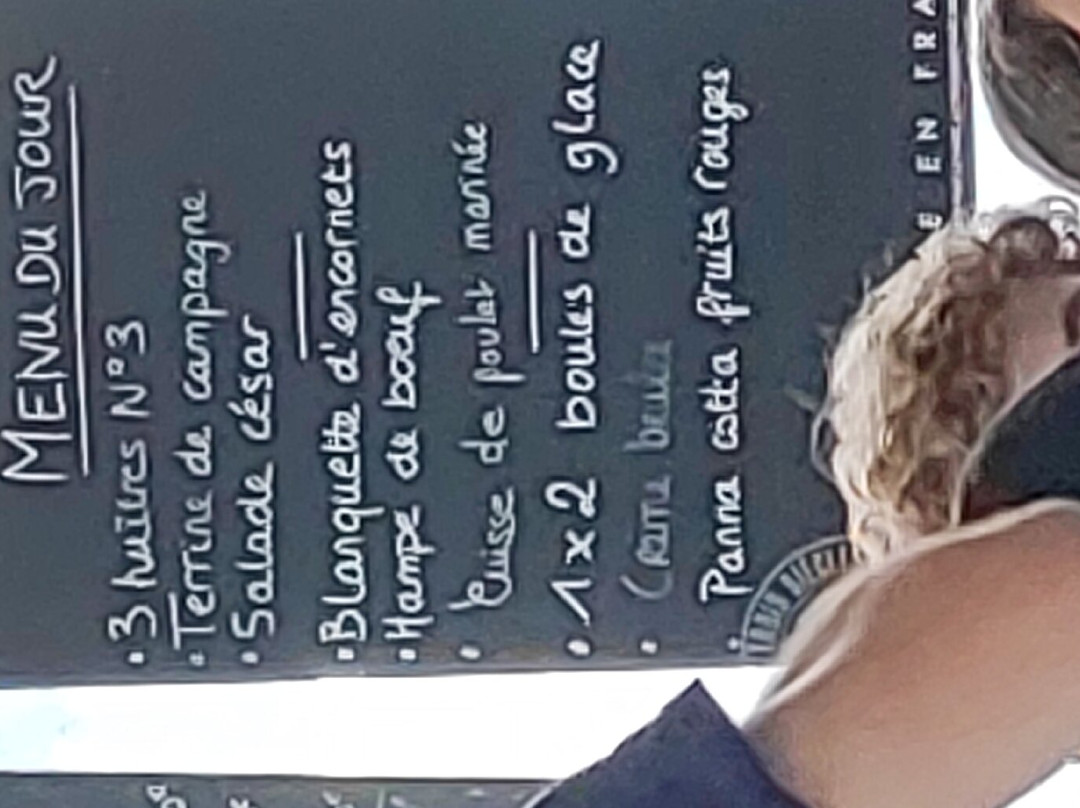 MENU DU JOUR
• 3 huîtres N°3
• Terrine de campagne
• Salade césar
• Blanquette d'encornets
• Hampe de bœuf
• Cuisse de poulet marinée
• 1 x 2 boules de glace
• Crème brulée
• Panna cotta fruits rouges
E EN FRA